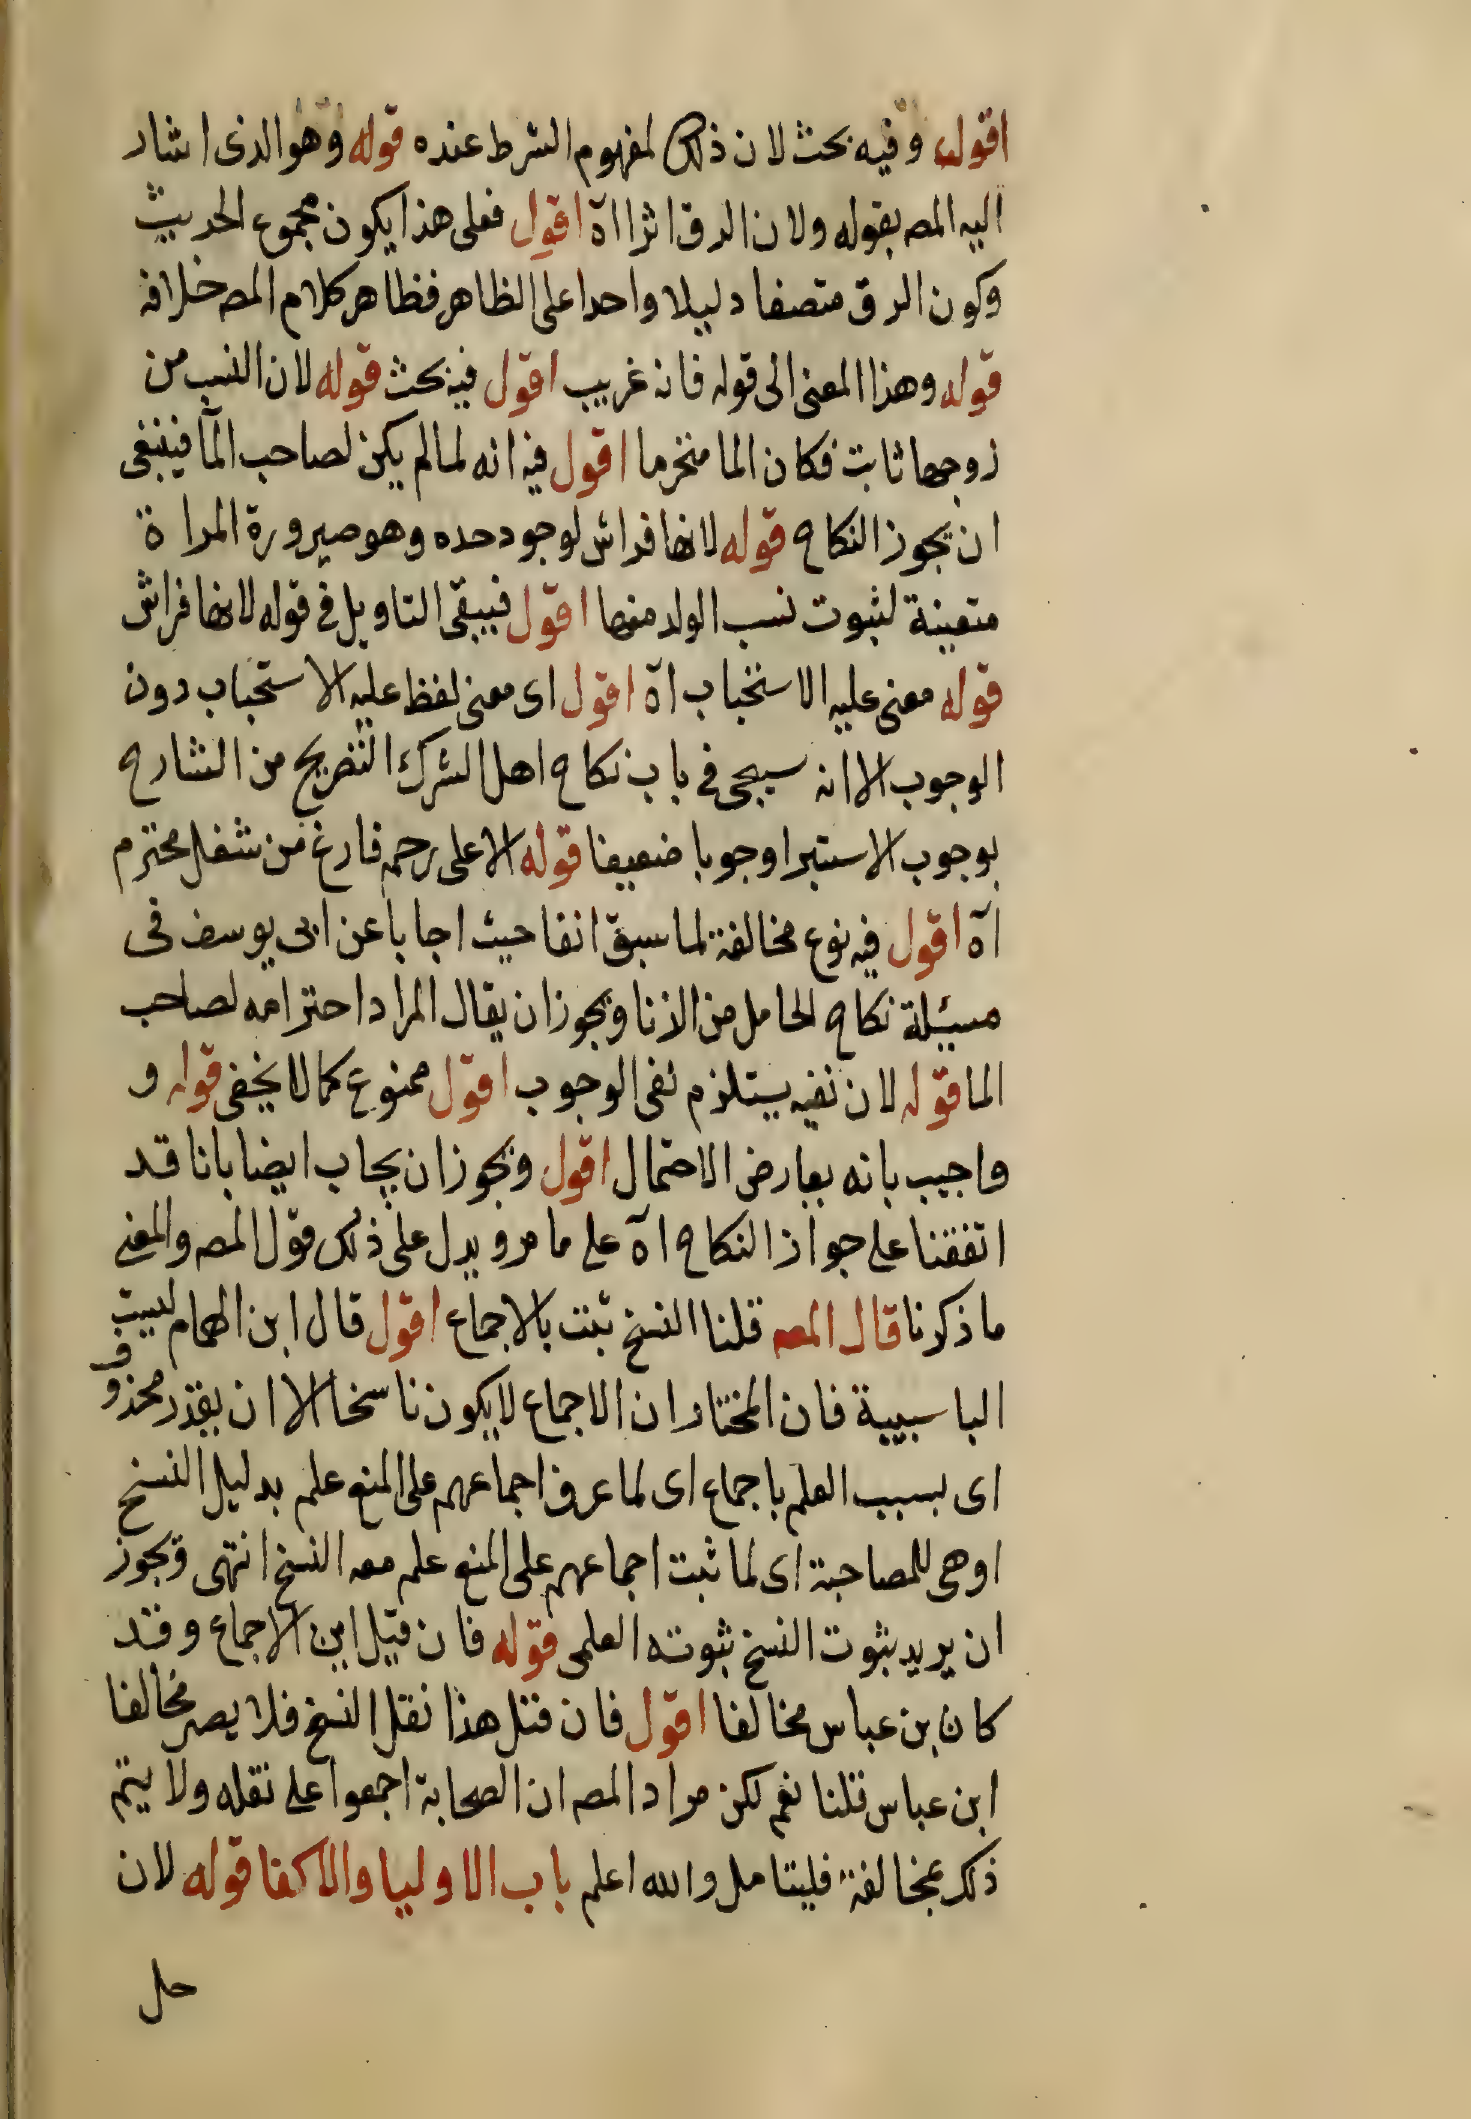 اقول وفيه بحث لان ذلك لمفهوم الشرط عنده قوله وهو الذى اشار
اليه المصه بقوله ولان الرق اثرا اه اقول فعلى هذا يكون مجموع الحديث
وكون الرق منصفا دليلا واحدا على الظاهر فظاهر كلام المصه خلافه
قوله وهذا المعنى الى قوله فانه غريب اقول فيه بحث قوله لان النسب من
زوجها ثابت فكان الما محترما اقول فيه انه لما لم يكن لصاحب المآ فينبغى
ان يجوز النكاح قوله لانها فراش لوجود حده وهو صيرورة المراة
متعينة لثبوت نسب الولد منها اقول فيبقى التاويل فى قوله لانها فراش
قوله معنى عليه الاستحباب اه اقول اى معنى لفظ عليه الاستحباب دون
الوجوب الا انه سيجى فى باب نكاح اهل الشرك التصريح من الشارح
بوجوب الاستبرا وجوبا ضعيفا قوله الا على رحم فارغ من شغل محترم
اه اقول فيه نوع مخالفة لما سبق انفا حيث اجابا عن ابى يوسف فى
مسئلة نكاح الحامل من الزنا ويجوز ان يقال المراد احترامه لصاحب
الما قوله لان نفيه يستلزم نفى الوجوب اقول ممنوع كما لا يخفى قوله و
واجيب بانه يعارض الاحتمال اقول ويجوز ان يجاب ايضا بانا قد
اتفقنا على جواز النكاح اه على ما مر ويدل على ذلك قول المصه والمعنى
ما ذكرنا قال المصه قلنا النسخ ثبت بالاجماع اقول قال ابن الهمام ليست
البا سببية فان المختار ان الاجماع لا يكون ناسخا الا ان يقدر محذوف
اى بسبب العلم باجماع اى لما عرف اجماعهم على المنع علم بدليل النسخ
او هى للمصاحبة اى لما ثبت اجماعهم على المنع علم معه النسخ انتهى ويجوز
ان يريد بثبوت النسخ ثبوته العلمى قوله فان قيل اين الاجماع وقد
كان بن عباس مخالفا اقول فان قتل هذا نقل النسخ فلا يصر مخالفا
ابن عباس قلنا نعم لكن مراد المصه ان الصحابة اجمعوا على نقله ولا يتم
ذلك بمخالفة فليتامل والله اعلم باب الاوليا والاكفا قوله لان
حل